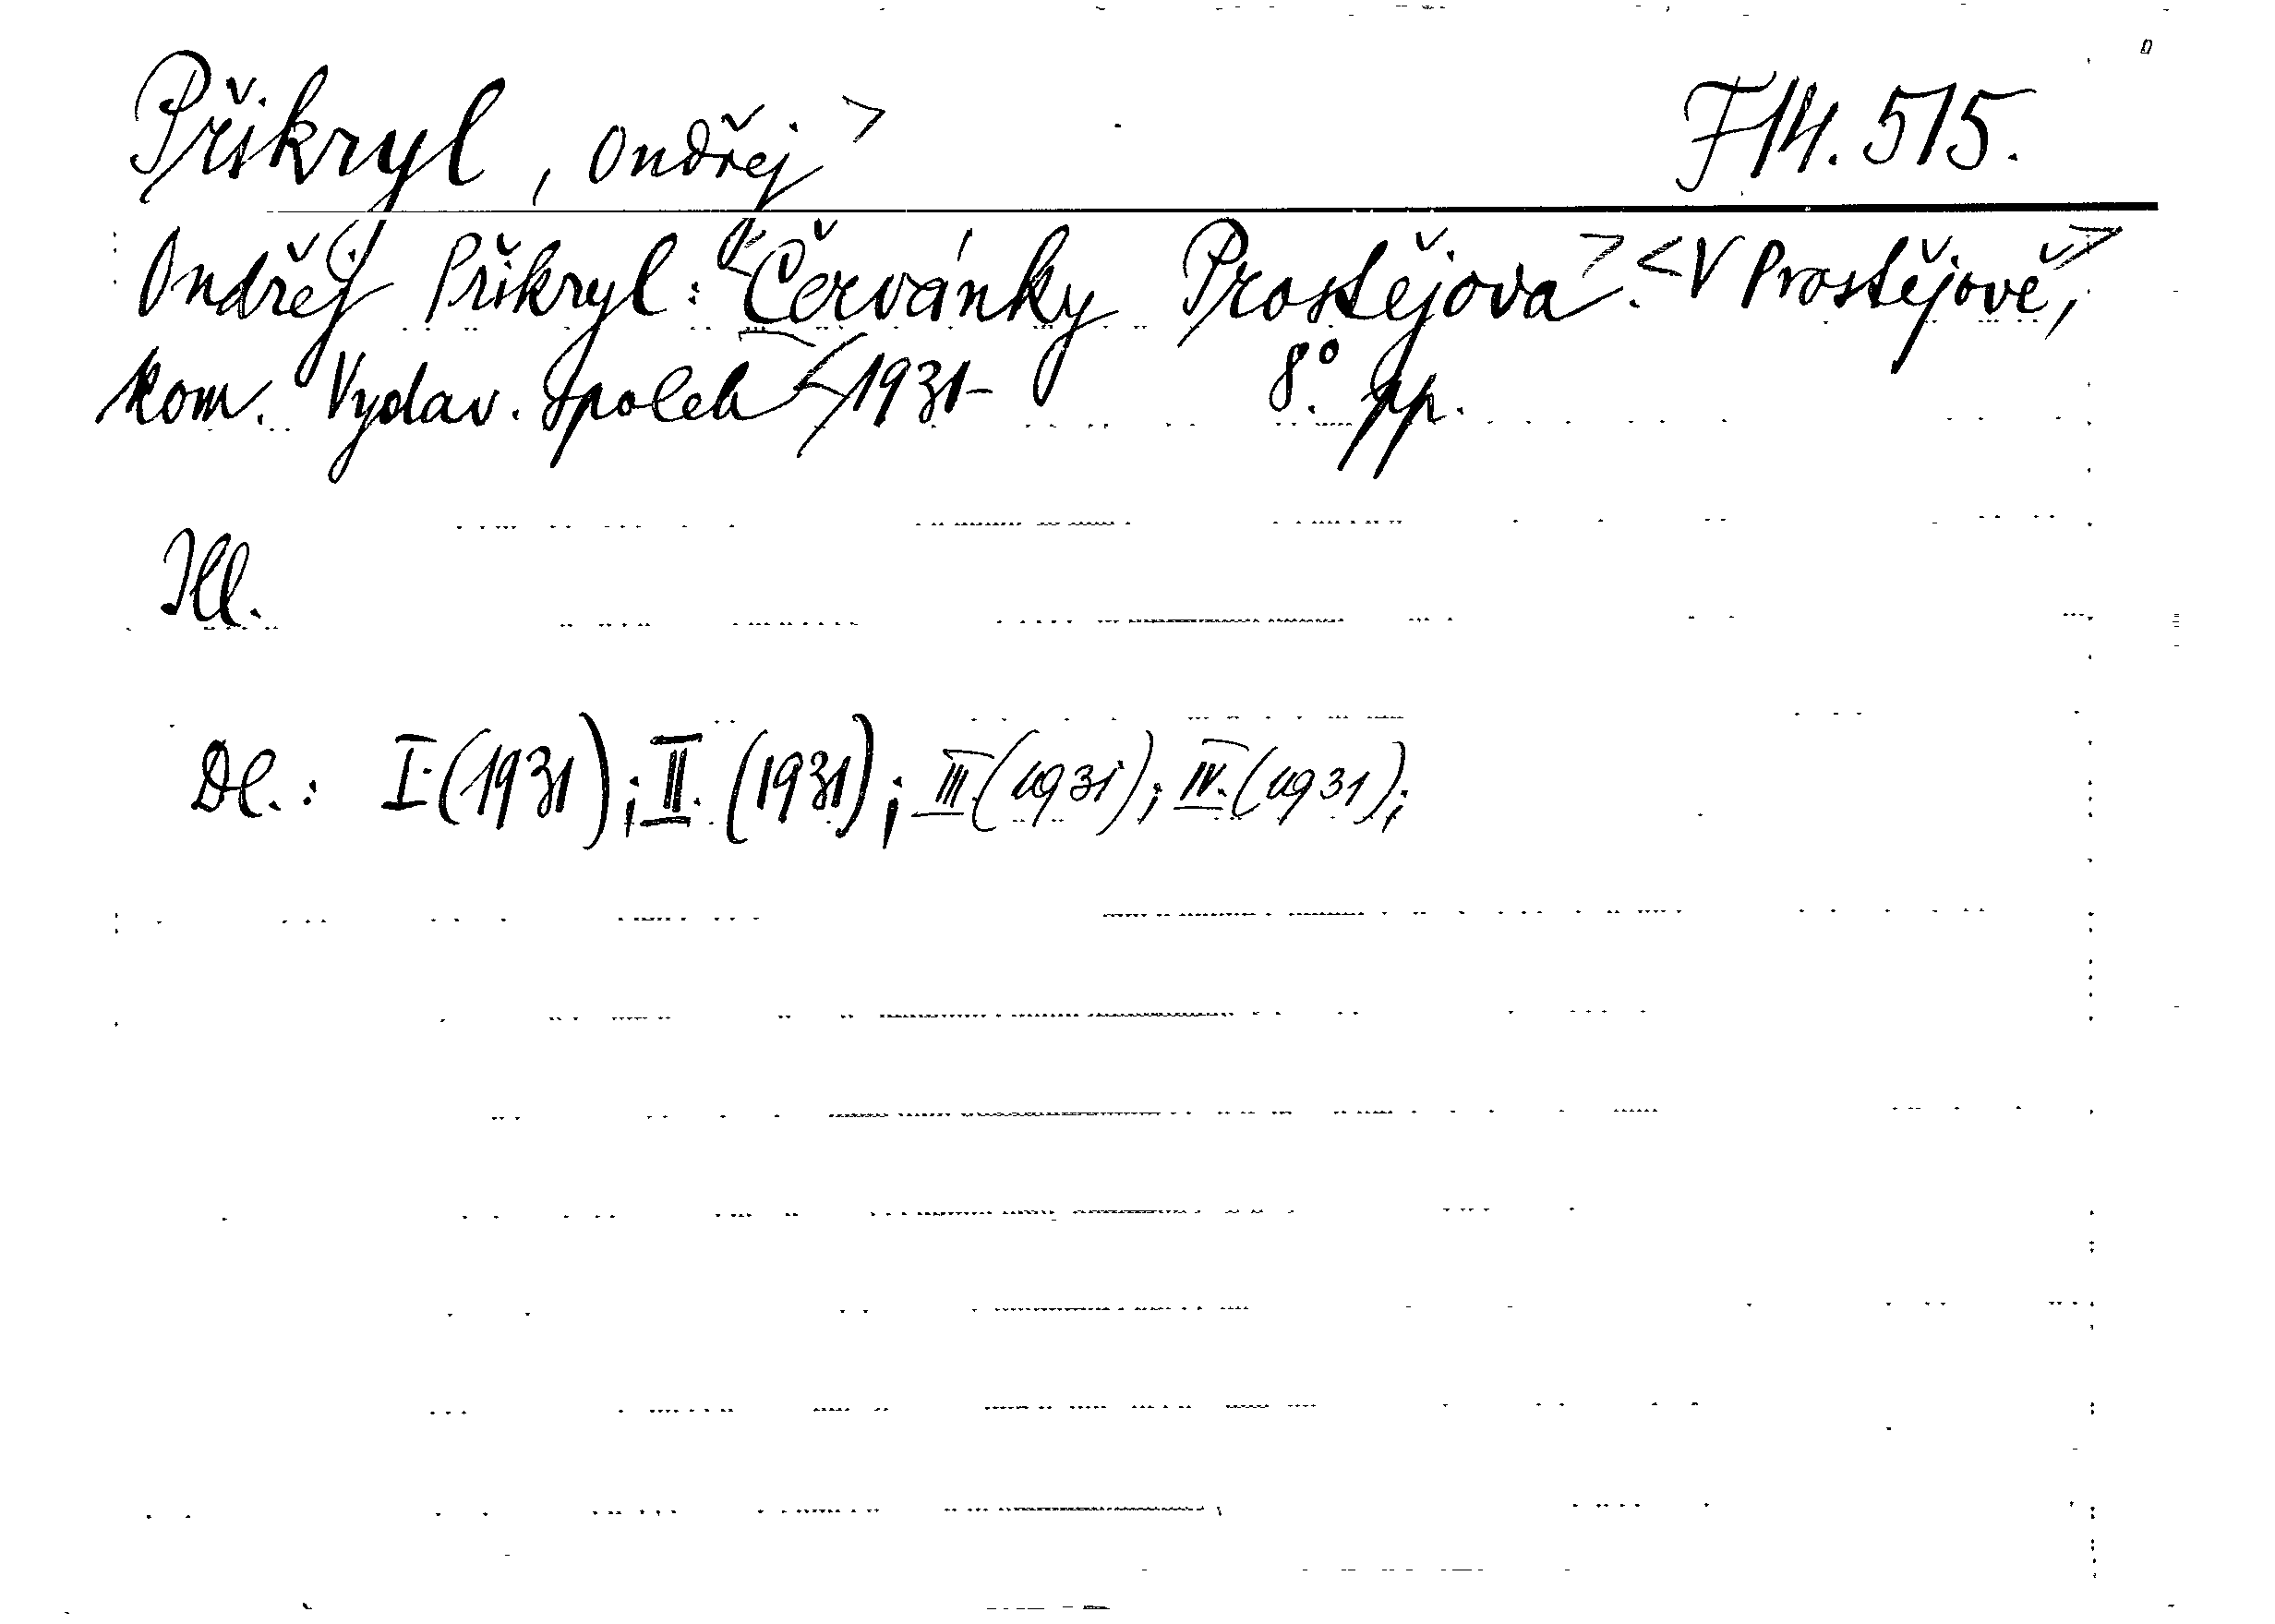 Přikryl, Ondřej > F 14.515.
Ondřej Přikryl: <Červánky Prostějova>. <V Prostějově,>
kom. Vydav. spolek <1931- 8°. pp.
Ill.
Dl.: I. (1931); II. (1931); III. (1931); IV. (1931);